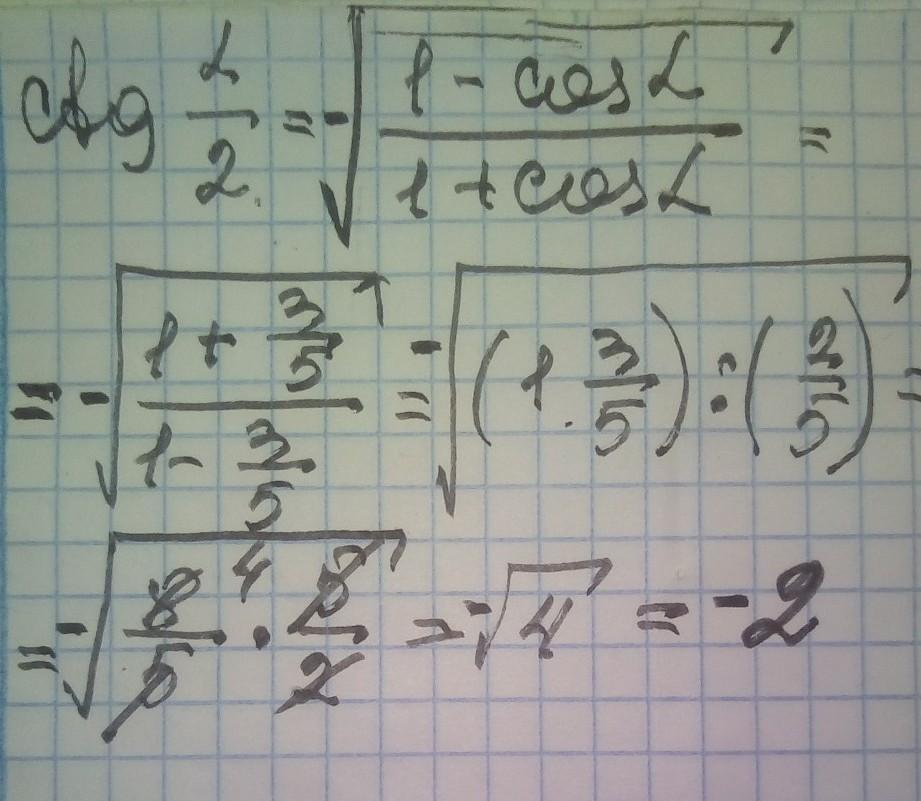 ctg α/2 = -√((1 - cos α)/(1 + cos α)) =
= -√((1 + 3/5)/(1 - 3/5)) = -√((1 3/5) : (2/5)) =
= -√(8/5 4 · 5/2) = -√4 = -2